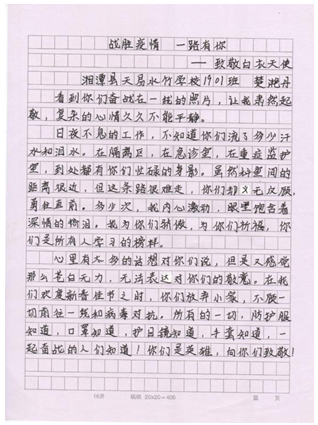 战胜疫情 一路有你
——致敬白衣天使
湘潭县天易水竹学校1901班 楚湘丹
看到你们奋战在一线的照片，让我肃然起
敬，复杂的心情久久不能平静。
日夜不息的工作，不知道你们流了多少汗
水和泪水。在隔离区，在急诊室，在重症监护
室，到处都有你们忙碌的身影。虽然与里间的
距离很近，但这条路很难走，你们却义无反顾，
勇往直前。多少次，我内心激动，眼里饱含着
深情的热泪。我为你们骄傲，为你们祈福，你
们是所有人学习的榜样。
心里有不多的话想对你们说，但是又感觉
那么苍白无力，无法表达对你们的敬意。在我
们欢度新春佳节之时，你们放弃小家，不顾一
切前往一线和病毒对抗。所有的一切，防护服
知道，口罩知道，护目镜知道，手套知道，一
起奋战的人们知道！你们是英雄，向你们致敬！
16开 稿纸 20x20=400 第 页